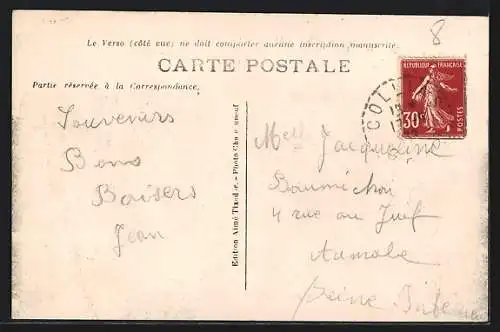 8
Le Verso (côté vue) ne doit comporter aucune inscription manuscrite.
CARTE POSTALE
Partie réservée à la Correspondance.
RÉPUBLIQUE FRANÇAISE
30c
POSTES
COLL
Souvenirs
Bons
Baisers
Jean
Edition Aimé - Photo
Melle Jacqueline
4 rue au Juif
Aumale
Seine Inférieure